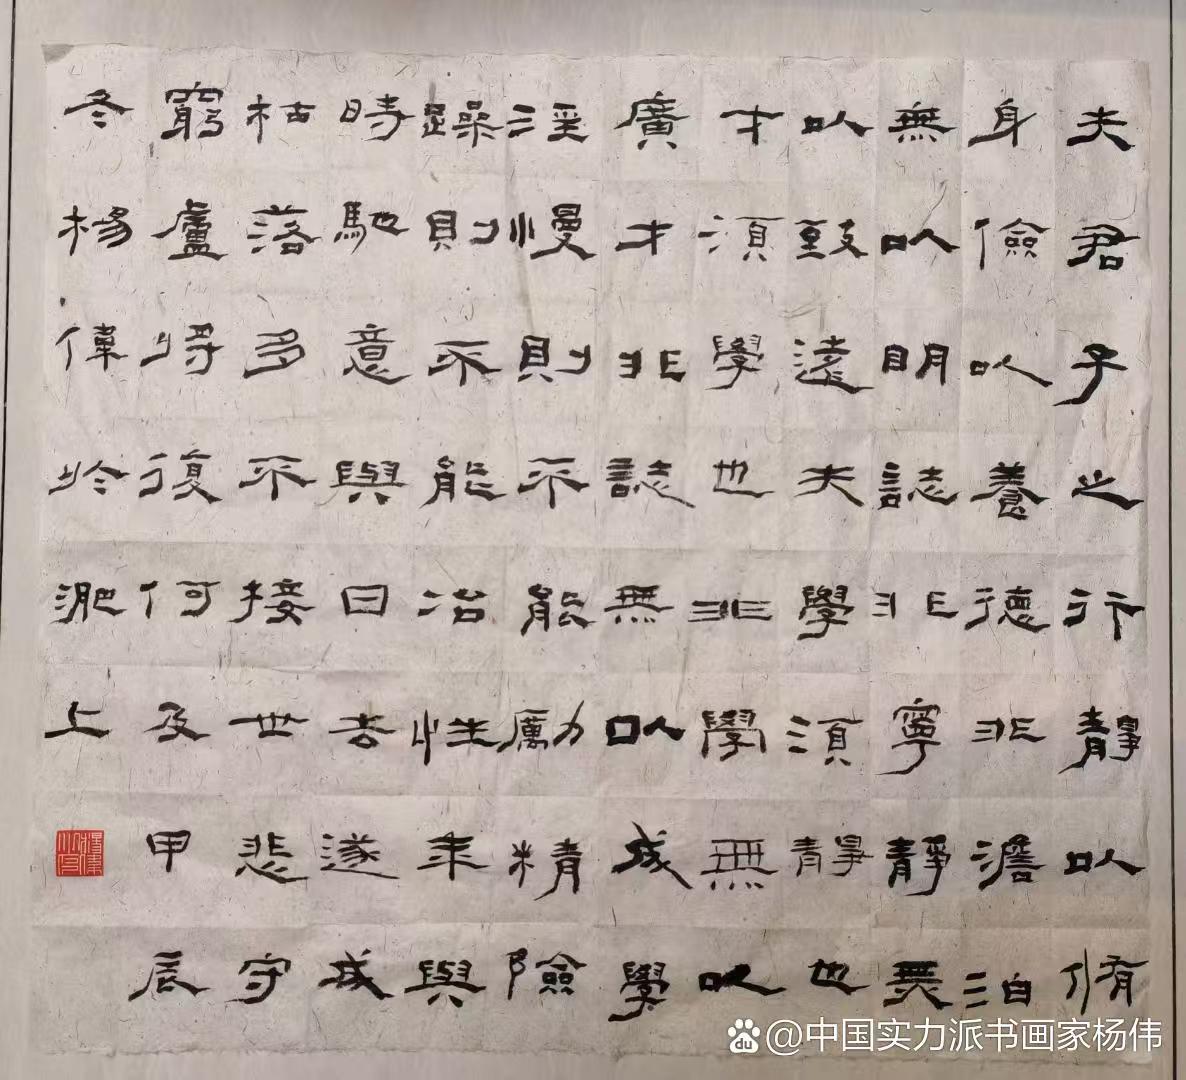 夫君子之行靜以脩
身儉以養德非澹泊
無以明誌非寧靜無
以致遠夫學須靜也
才須學也非學無以
廣才非誌無以成學
淫慢則不能勵精險
躁則不能治性年與
時馳意與日去遂成
枯落多不接世悲守
窮盧將復何及甲辰
冬楊偉於淝上
@中国实力派书画家杨伟